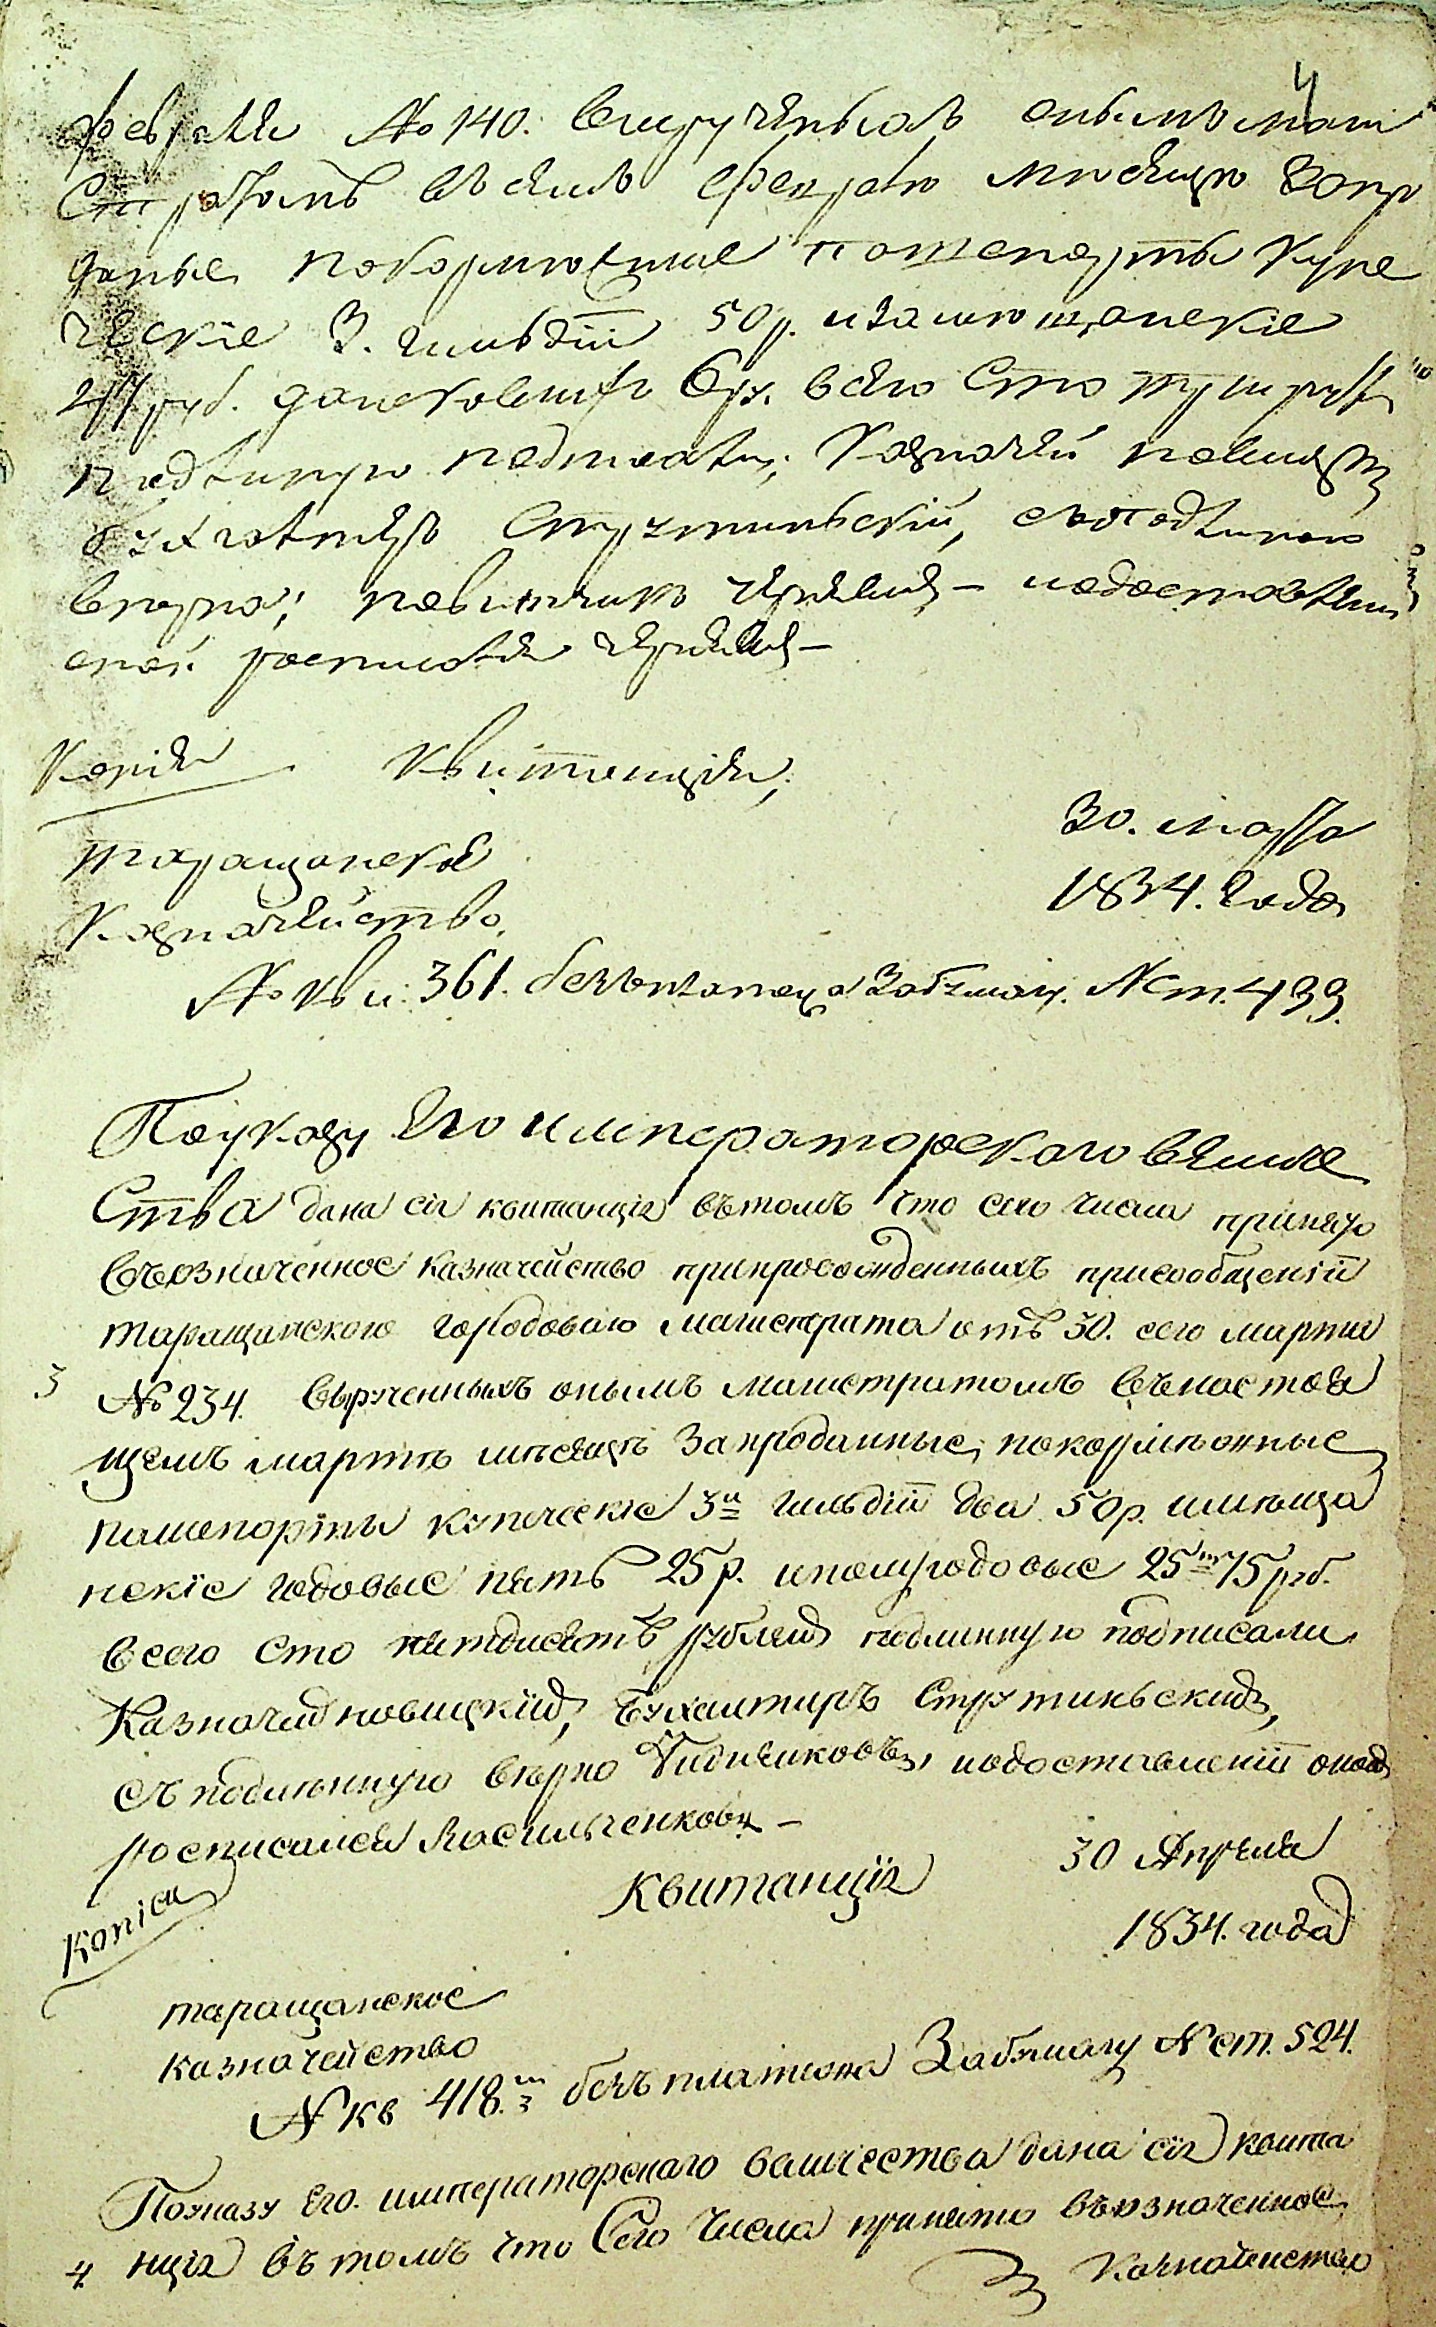 4
февраля № 140. вырученыхъ онымъ маги
стратомъ въ семъ февралѣ мѣсяцѣ запро
даные покормежние пашепорты купе
ческіе 3. гильдіи 50 р. изаможщанскіе
руб. всего сто три рубл
подлинную подписали, Казначей новицкій
бухгалтеръ Струтиньскій, съподлиною
вѣрно; надоставлени
оной росписался
Копія Квитанция,
30. марта
таращанское
1834. года
Казначейство,
№ кви: 361. безъплатежа Забумагу. № ст. 499.
Поуказу Его императорского величе
Ства дана сія квитанція вътомъ что сего числа принято
въозначенное казначейство припровожденныхъ присообщеніи
таращанского городоваго магистрата отъ 30. сего марта
3
№ 234. вырученныхъ онымъ магистратомъ въностоя
щемъ мартѣ мѣсяцѣ запроданные, покормѣжные
пашепорты купческіе 3й гильдіи два 50 р. имѣща
нскіе годовые пять 25 р. иполугодовые 25ть 75 руб.
всего сто пятдисятъ рублей подлинную подписали
Казначей новицкій, бухгалтиръ Струтиньский,
съ подлинную вѣрно надоставленіи оной
росписался Васильченковъ —
Копіа
Квитанція
30 Апреля
1834. года
таращанское
казначейство
№ кв 418. безъ платежа Забумагу № ст. 524.
Поуказу Его. императорскаго величества дана сія квита
4. нція въ томъ что Сего Числа принято въозначенное
Казначейство